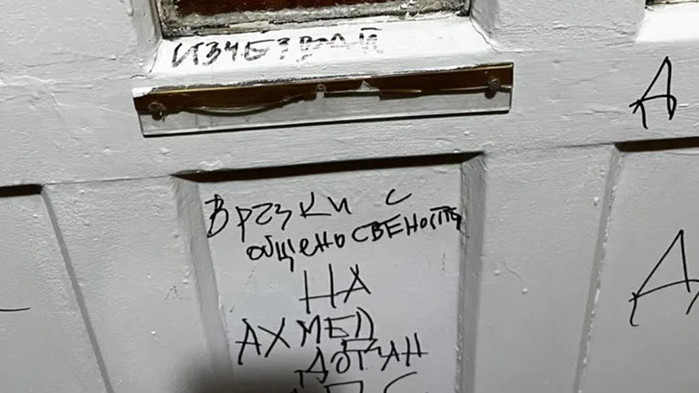 ИЗЧЕЗВАЙ
ВРЪЗКИ С
ОБЩЕНОСВЕНОСТТА
НА
АХМЕД
ДОГАН
ДПС
А
Д